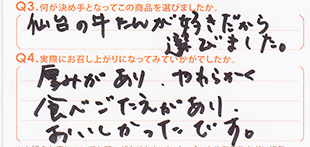 Q3.何が決め手となってこの商品を選びましたか。
仙台の牛たんが好きだから
選びました。
Q4.実際にお召し上がりになってみていかがでしたか。
厚みがあり、やわらかく
食べごたえがあり、
おいしかったです。